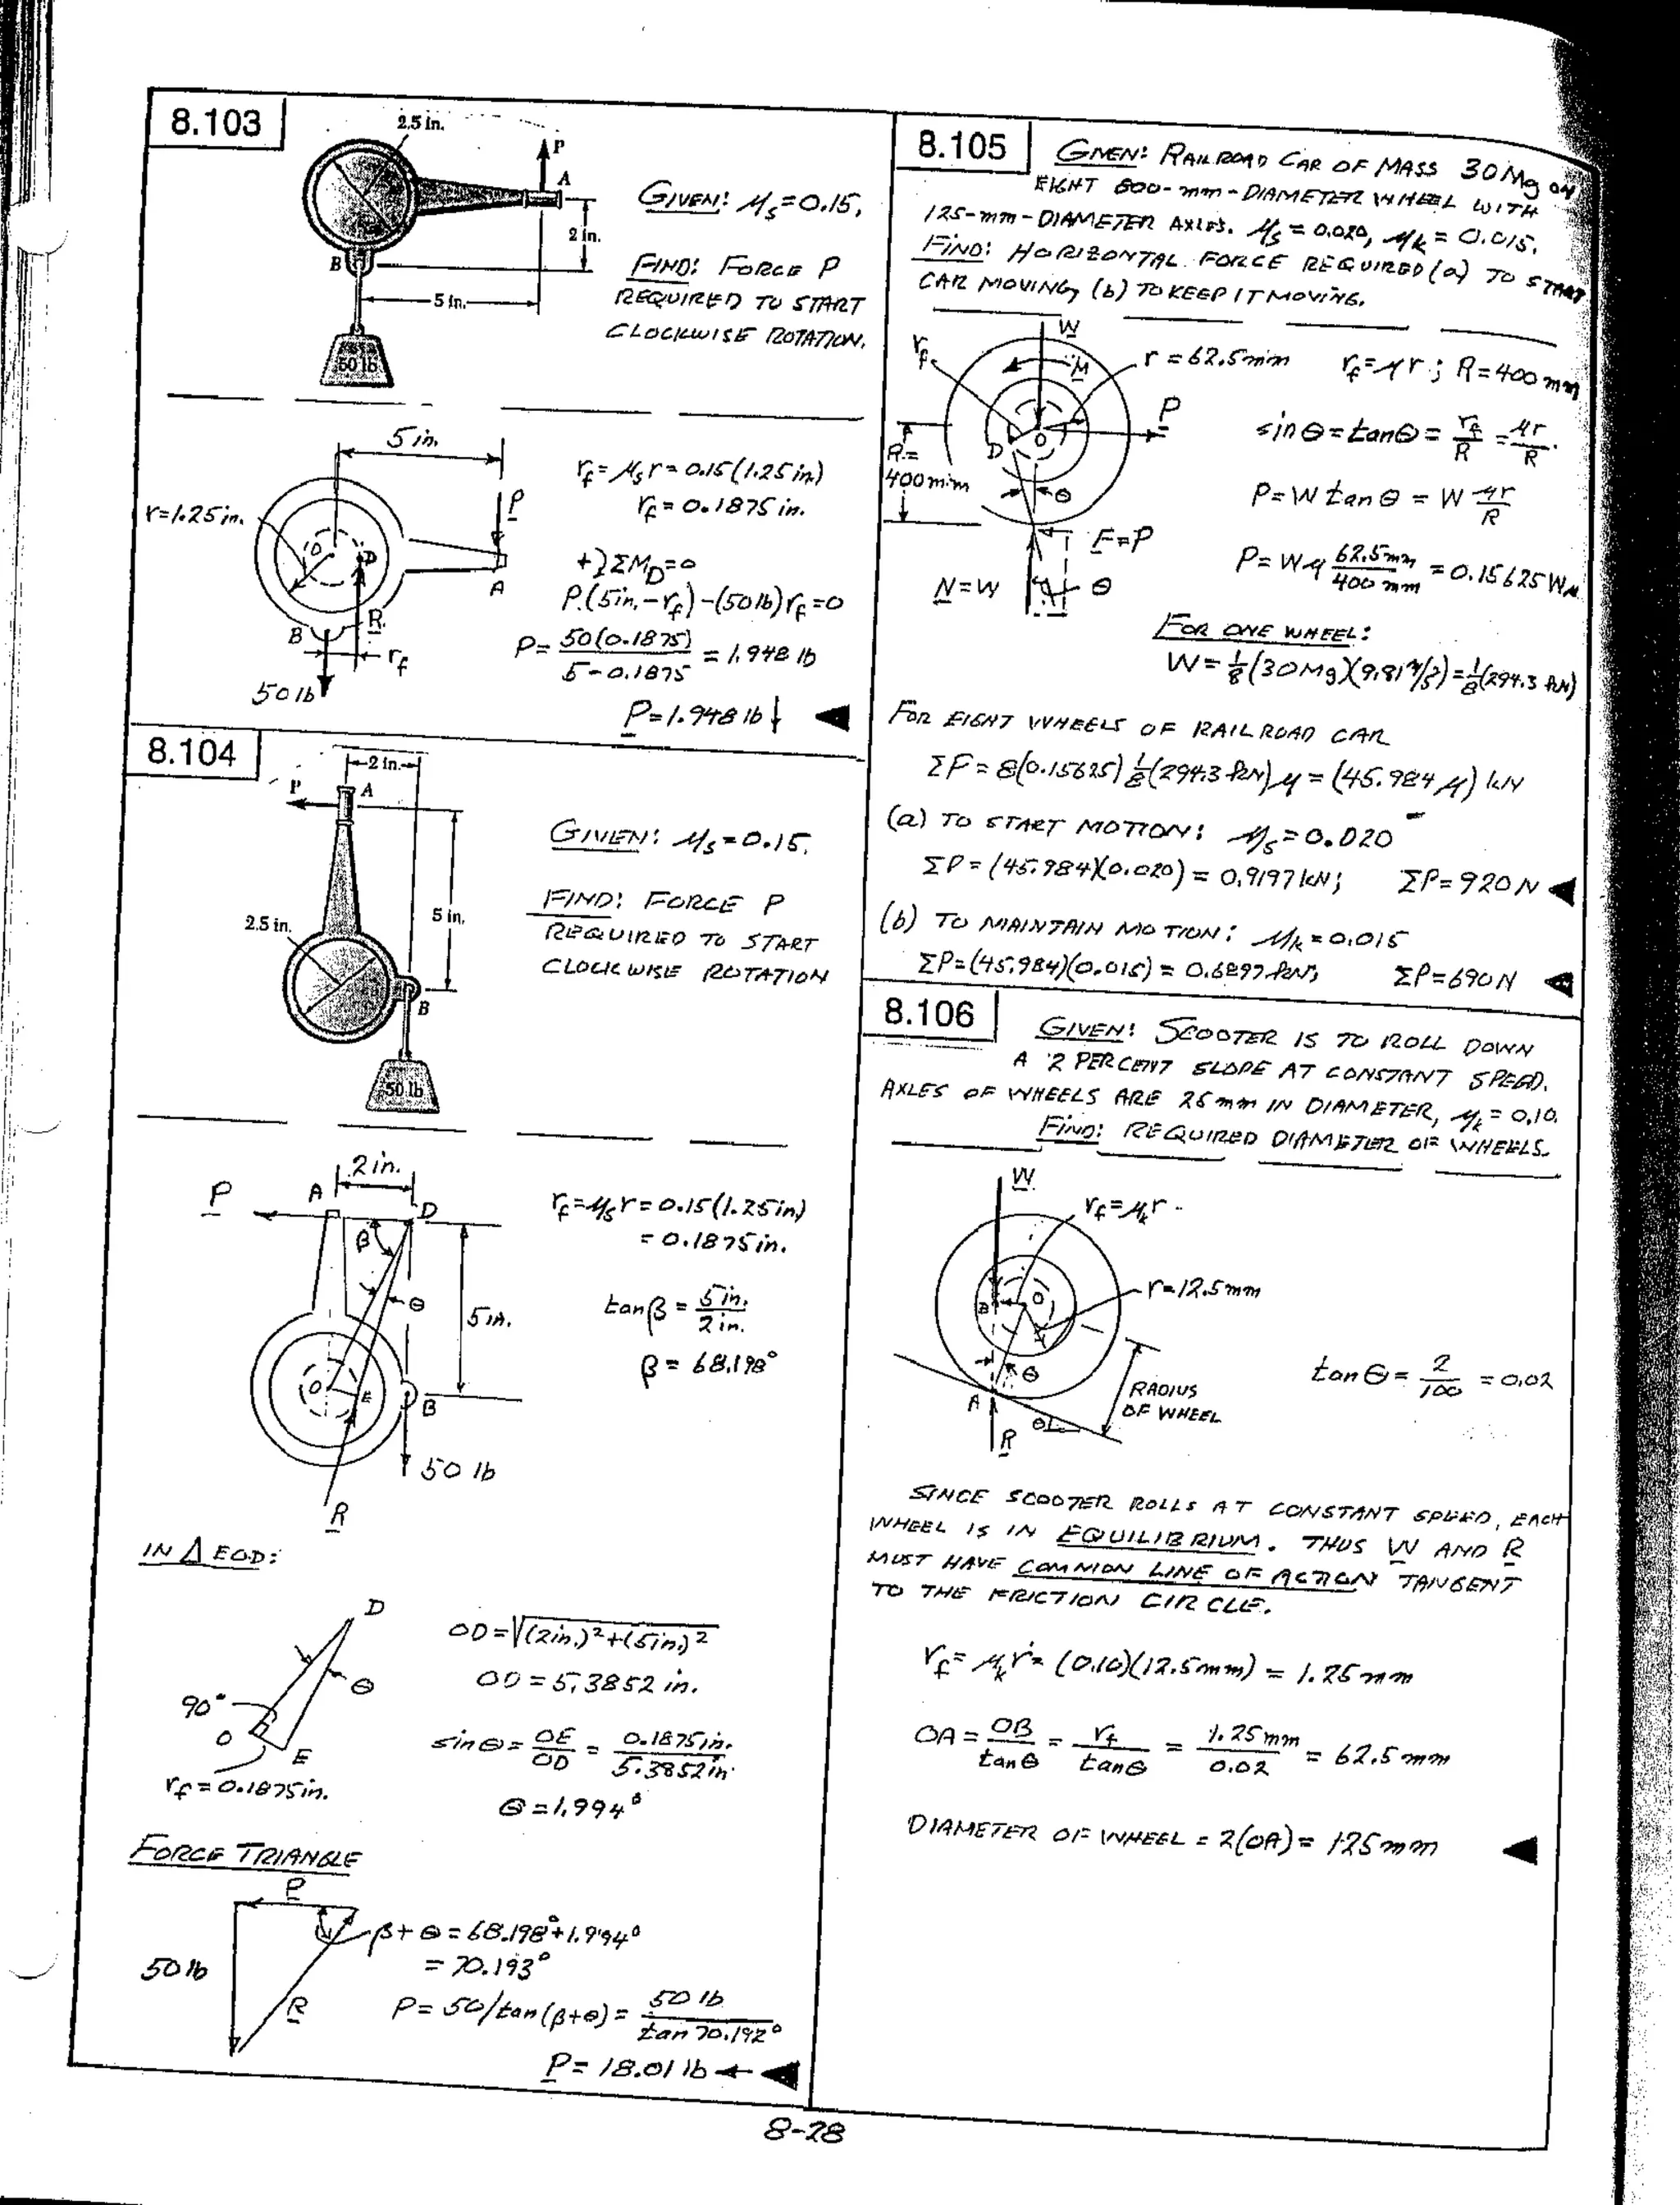 8.103
2.5 in.
P
A
2 in.
B
5 in.
50 lb
GIVEN: μs=0.15,
FIND: FORCE P
REQUIRED TO START
CLOCKWISE ROTATION.
5 in.
r=1.25in.
P
O
D
A
B
R
rf
50 lb
rf = μs r = 0.15(1.25 in)
rf = 0.1875 in.
+⤸ΣMD=0
P(5in.-rf)-(50lb)rf=0
P= 50(0.1875) / 5-0.1875 = 1.948 lb
P=1.948 lb↓ ◀
8.104
2 in.
P
A
2.5 in.
5 in.
B
50 lb
GIVEN: μs=0.15.
FIND: FORCE P
REQUIRED TO START
CLOCKWISE ROTATION
2in.
P
A
D
β
θ
5 in.
O
E
B
50 lb
R
rf=μs r = 0.15(1.25in)
= 0.1875in.
tanβ = 5in. / 2in.
β = 68.198°
IN Δ EOD:
D
θ
90°
O
E
rf = 0.1875in.
OD=√(2in.)²+(5in.)²
OD = 5.3852 in.
sinθ = OE/OD = 0.1875in. / 5.3852in.
θ=1.994°
FORCE TRIANGLE
P
50 lb
R
β+θ = 68.198°+1.994°
= 70.193°
P= 50/tan(β+θ) = 50 lb / tan 70.192°
P= 18.01 lb ← ◀
8.105
GIVEN: RAILROAD CAR OF MASS 30Mg ON
EIGHT 800-mm-DIAMETER WHEEL WITH
125-mm-DIAMETER AXLES. μs = 0.020, μk = 0.015.
FIND: HORIZONTAL FORCE REQUIRED (a) TO START
CAR MOVING, (b) TO KEEP IT MOVING.
W
rf
M
r = 62.5mm
P
D
O
R=
400mm
θ
F=P
N=W
θ
rf=μr ; R=400 mm
sinθ=tanθ= rf/R = μr/R
P=W tanθ = W μr/R
P= Wμ 62.5mm / 400 mm = 0.15625Wμ
FOR ONE WHEEL:
W= 1/8(30Mg)(9.81 m/s²)=1/8(294.3 kN)
FOR EIGHT WHEELS OF RAILROAD CAR
ΣP = 8(0.15625) 1/8(294.3 kN)μ = (45.984 μ) kN
(a) TO START MOTION: μs = 0.020
ΣP = (45.984)(0.020) = 0.9197 kN; ΣP=920 N ◀
(b) TO MAINTAIN MOTION: μk=0.015
ΣP=(45.984)(0.015) = 0.6897 kN; ΣP=690 N ◀
8.106
GIVEN: SCOOTER IS TO ROLL DOWN
A 2 PERCENT SLOPE AT CONSTANT SPEED.
AXLES OF WHEELS ARE 25 mm IN DIAMETER, μk = 0.10.
FIND: REQUIRED DIAMETER OF WHEELS.
W
rf=μk r
r=12.5mm
B
O
θ
A
θ
R
RADIUS
OF WHEEL
tan θ = 2/100 = 0.02
SINCE SCOOTER ROLLS AT CONSTANT SPEED, EACH
WHEEL IS IN EQUILIBRIUM. THUS W AND R
MUST HAVE COMMON LINE OF ACTION TANGENT
TO THE FRICTION CIRCLE.
rf= μk r = (0.10)(12.5mm) = 1.25 mm
OA = OB/tanθ = rf/tanθ = 1.25mm / 0.02 = 62.5 mm
DIAMETER OF WHEEL = 2(OA)= 125 mm ◀
8-28